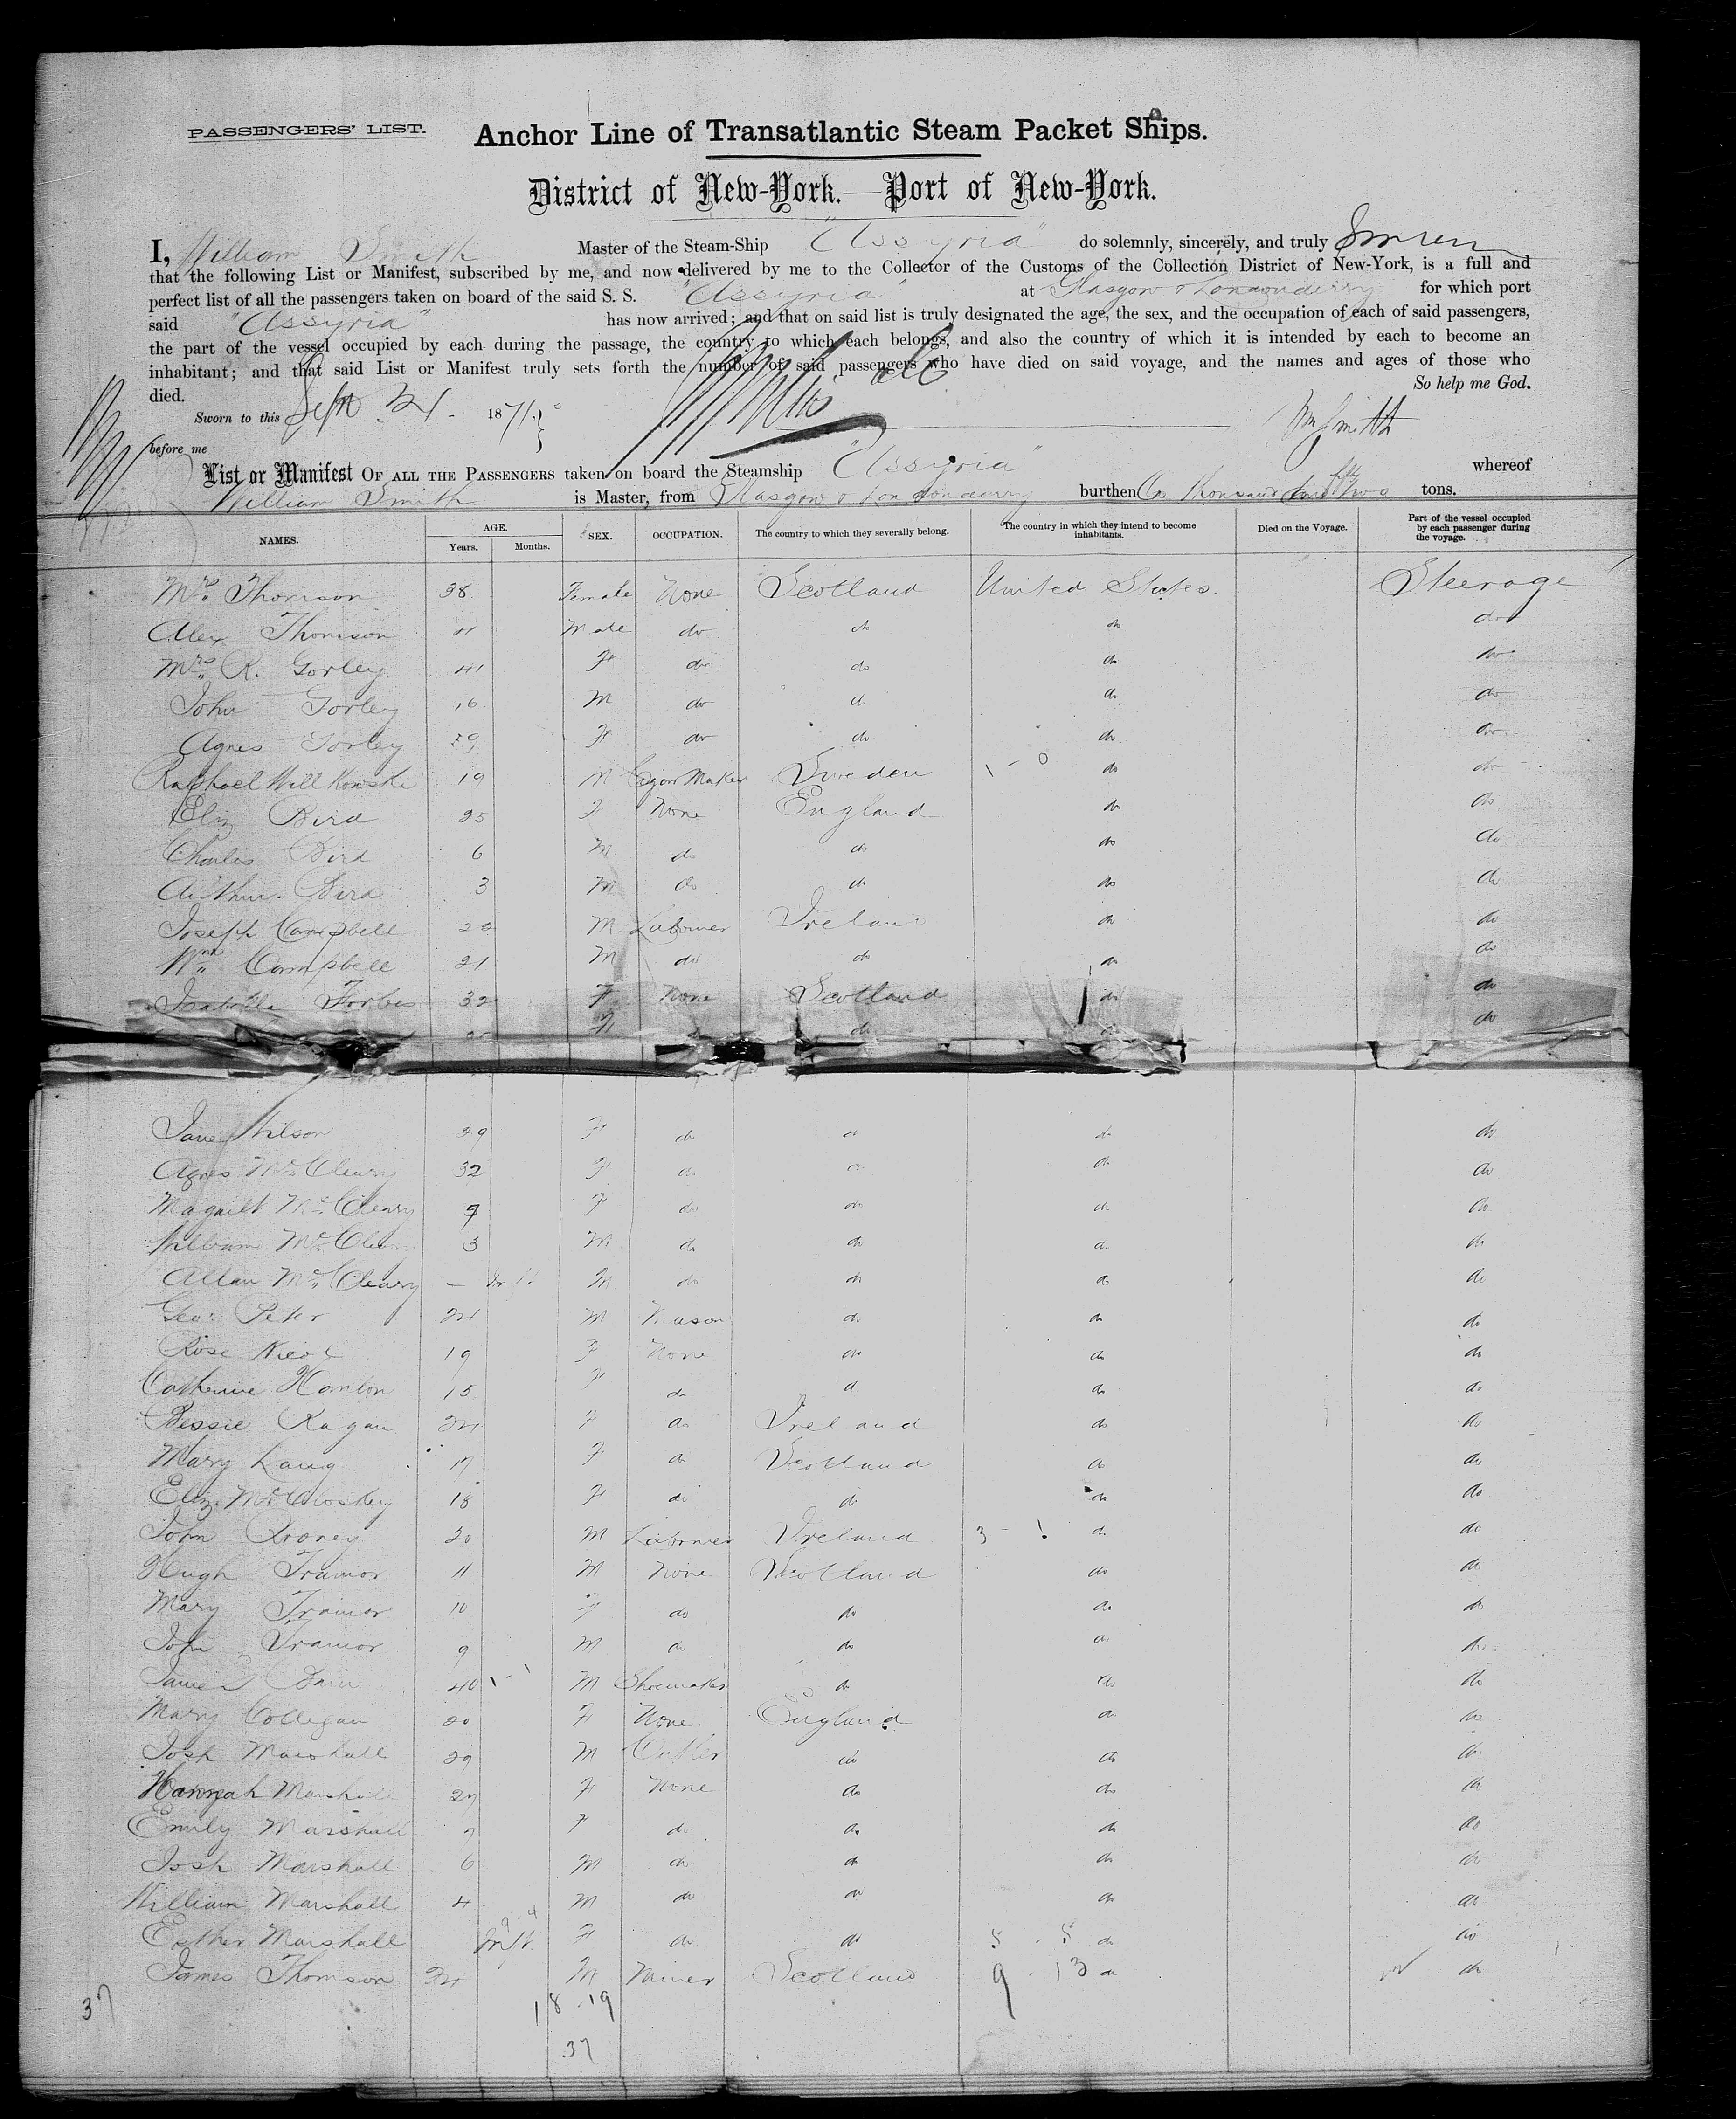 PASSENGERS' LIST.
Anchor Line of Transatlantic Steam Packet Ships.
District of New-York.—Port of New-York.
I, William Smith Master of the Steam-Ship "Assyria" do solemnly, sincerely, and truly Swear
that the following List or Manifest, subscribed by me, and now delivered by me to the Collector of the Customs of the Collection District of New-York, is a full and
perfect list of all the passengers taken on board of the said S. S. "Assyria" at Glasgow & Londonderry for which port
said "Assyria" has now arrived; and that on said list is truly designated the age, the sex, and the occupation of each of said passengers,
the part of the vessel occupied by each during the passage, the country to which each belongs, and also the country of which it is intended by each to become an
inhabitant; and that said List or Manifest truly sets forth the number of said passengers who have died on said voyage, and the names and ages of those who
died. So help me God.
Sworn to this Sept 21 1871 Wm Smith
before me
List or Manifest OF ALL THE PASSENGERS taken on board the Steamship "Assyria" whereof
William Smith is Master, from Glasgow & Londonderry burthen thousand two tons.
NAMES. AGE. Years. Months. SEX. OCCUPATION. The country to which they severally belong. The country in which they intend to become inhabitants. Died on the Voyage. Part of the vessel occupied by each passenger during the voyage.
Mrs. Thomson 38 Female None Scotland United States. Steerage
Alex Thomson 11 Male do do do do
Mrs. R. Gorley 41 F do do do do
John Gorley 16 M do do do do
Agnes Gorley F do do do do
Raphael Willkowske 19 M Cigar Maker Sweden 1 - 0 do do
Eliz Bird 25 F None England do do
Charles Bird 6 M do do do do
Arthur Bird 3 M do do do do
Joseph Campbell 20 M Labourer Ireland do do
Wm Campbell 21 M do do do do
Isabella Forbes 32 F None Scotland do do
do do
Jane Wilson 29 F do do do do
Agnes McCleary 32 F do do do do
Magarett McCleary 9 F do do do do
William McClea 3 M do do do do
Allan McCleary — Inft M do do do do
Geo: Peter 21 M Mason do do do
Rose Nicol 19 F None do do do
Catherine Hanlon 15 F do do do do
Bessie Ragan 24 F do Ireland do do
Mary Lang 17 F do Scotland do do
Eliz. McCloskey 18 F do do do do
John Rooney 20 M Labourer Ireland 3 - 1 do do
Hugh Trainor 11 M None Scotland do do
Mary Trainor 10 F do do do do
John Trainor 9 M do do do do
James Bain 40 1 - 1 M Shoemaker do do do
Mary Collegan 20 F None England do do
Josh Marshall 29 M Cutler do do do
Hannah Marshall 27 F None do do do
Emily Marshall 7 F do do do do
Josh Marshall 6 M do do do do
William Marshall 4 M do do do do
Esther Marshall Inft. 9 4 F do do 5 - 5 do do
James Thomson 24 M Miner Scotland 9 - 13 do do
37 18 . 19
37